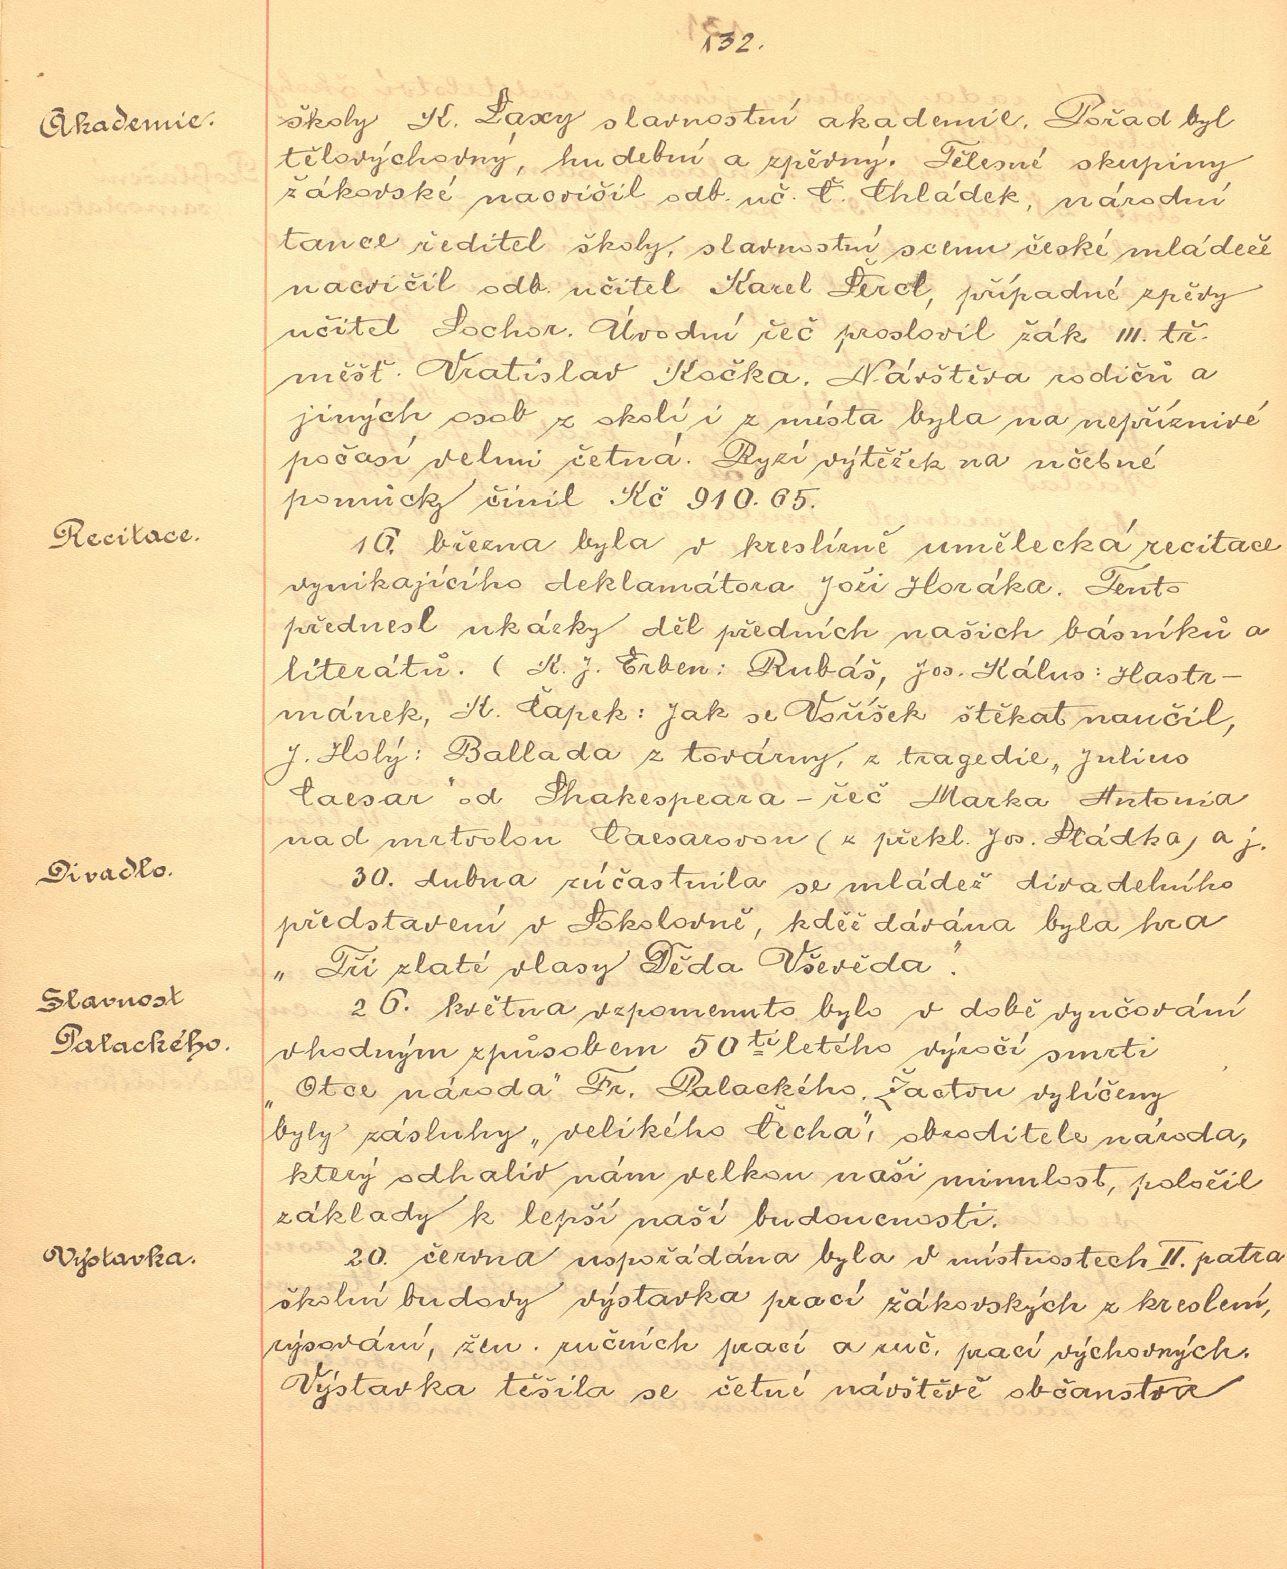 132.
Akademie.
školy K. Šaxy slavnostní akademie. Pořad byl
tělovýchovný, hudební a zpěvný. Tělesné skupiny
žákovské nacvičil odb. uč. Č. Chládek, národní
tance ředitel školy, slavnostní scenu české mládeže
nacvičil odb. učitel Karel Šercl, případné zpěvy
učitel Sochor. Úvodní řeč proslovil žák III. tř.
měšť. Vratislav Kočka. Návštěva rodičů a
jiných osob z okolí i z místa byla na nepříznivé
počasí velmi četná. Ryzí výtěžek na učebné
pomůcky činil Kč 910.65.
Recitace.
16. března byla v kreslírně umělecká recitace
vynikajícího deklamátora Joži Horáka. Tento
přednesl ukázky děl předních našich básníků a
literátů. (K. J. Erben: Rubáš, Jos. Kálus: Hastr-
mánek, K. Čapek: Jak se Voříšek štěkat naučil,
J. Holý: Ballada z továrny, z tragedie „Julius
Caesar" od Shakespeara - řeč Marka Antonia
nad mrtvolou Caesarovou (z překl. Jos. Sládka) a j.
Divadlo.
30. dubna zúčastnila se mládež divadelního
představení v Sokolovně, kděž dávána byla hra
„Tři zlaté vlasy Děda Vševěda".
Slavnost
Palackého.
26. května vzpomenuto bylo v době vyučování
vhodným způsobem 50 tiletého výročí smrti
„Otce národa" Fr. Palackého. Žactvu vylíčeny
byly zásluhy „velikého Čecha", obroditele národa,
který odhaliv nám velkou naši minulost, položil
základy k lepší naší budoucnosti.
Výstavka.
20. června uspořádána byla v místnostech II. patra
školní budovy výstavka prací žákovských z kreslení,
rýsování, žen. ručních prací a ruč. prací výchovných.
Výstavka těšila se četné návštěvě občanstva